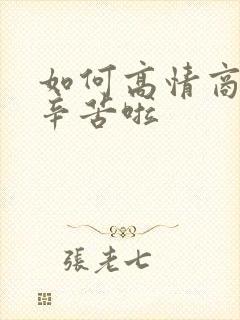 如何高情商
辛苦啦
張老七